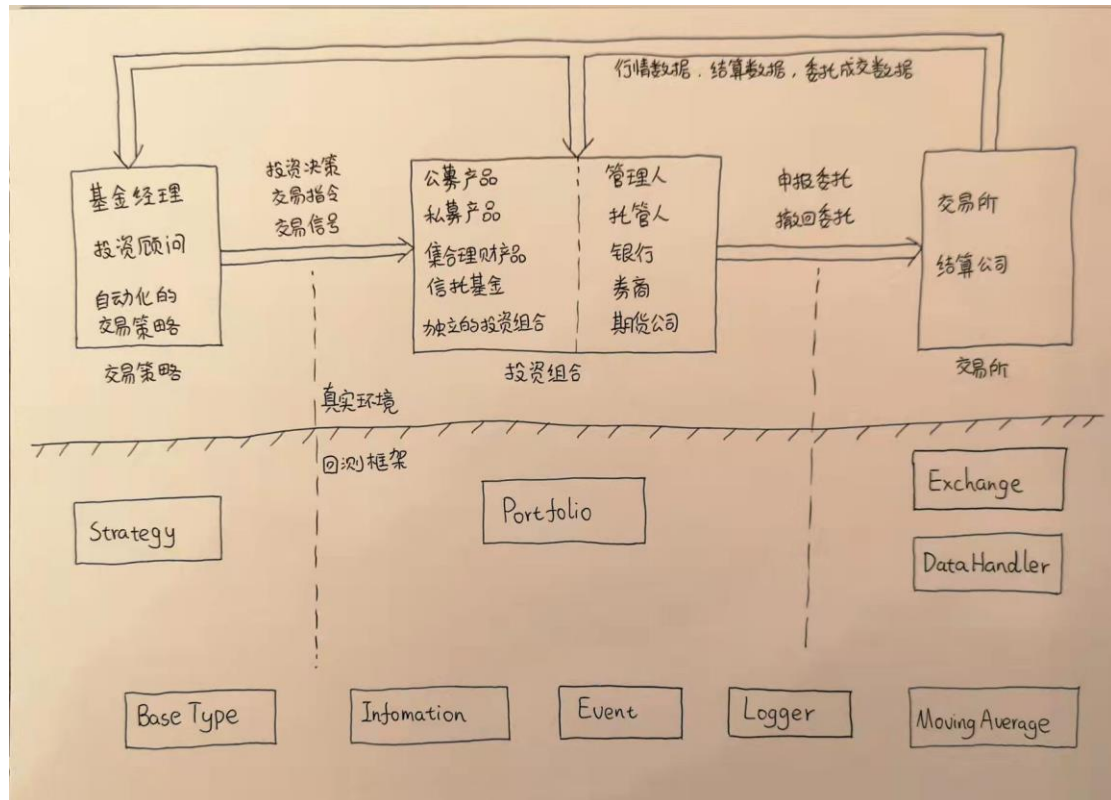 行情数据，结算数据，委托成交数据
基金经理
投资顾问
自动化的
交易策略
交易策略
投资决策
交易指令
交易信号
公募产品
私募产品
集合理财产品
信托基金
独立的投资组合
管理人
托管人
银行
券商
期货公司
投资组合
申报委托
撤回委托
交易所
结算公司
交易所
真实环境
回测框架
Strategy
Portfolio
Exchange
DataHandler
Base Type
Infomation
Event
Logger
Moving Average